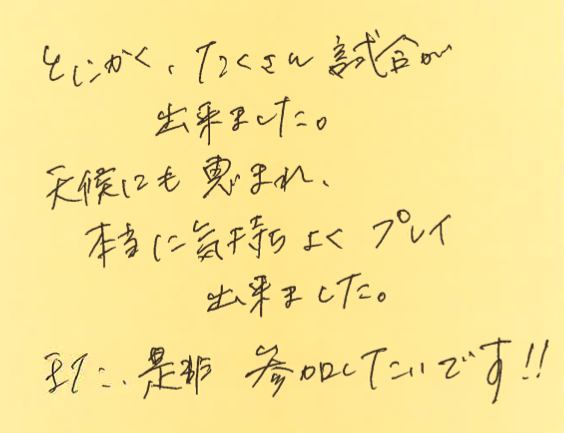 とにかく、たくさん試合が
出来ました。
天候にも恵まれ、
本当に気持ちよくプレイ
出来ました。
また、是非 参加したいです!!